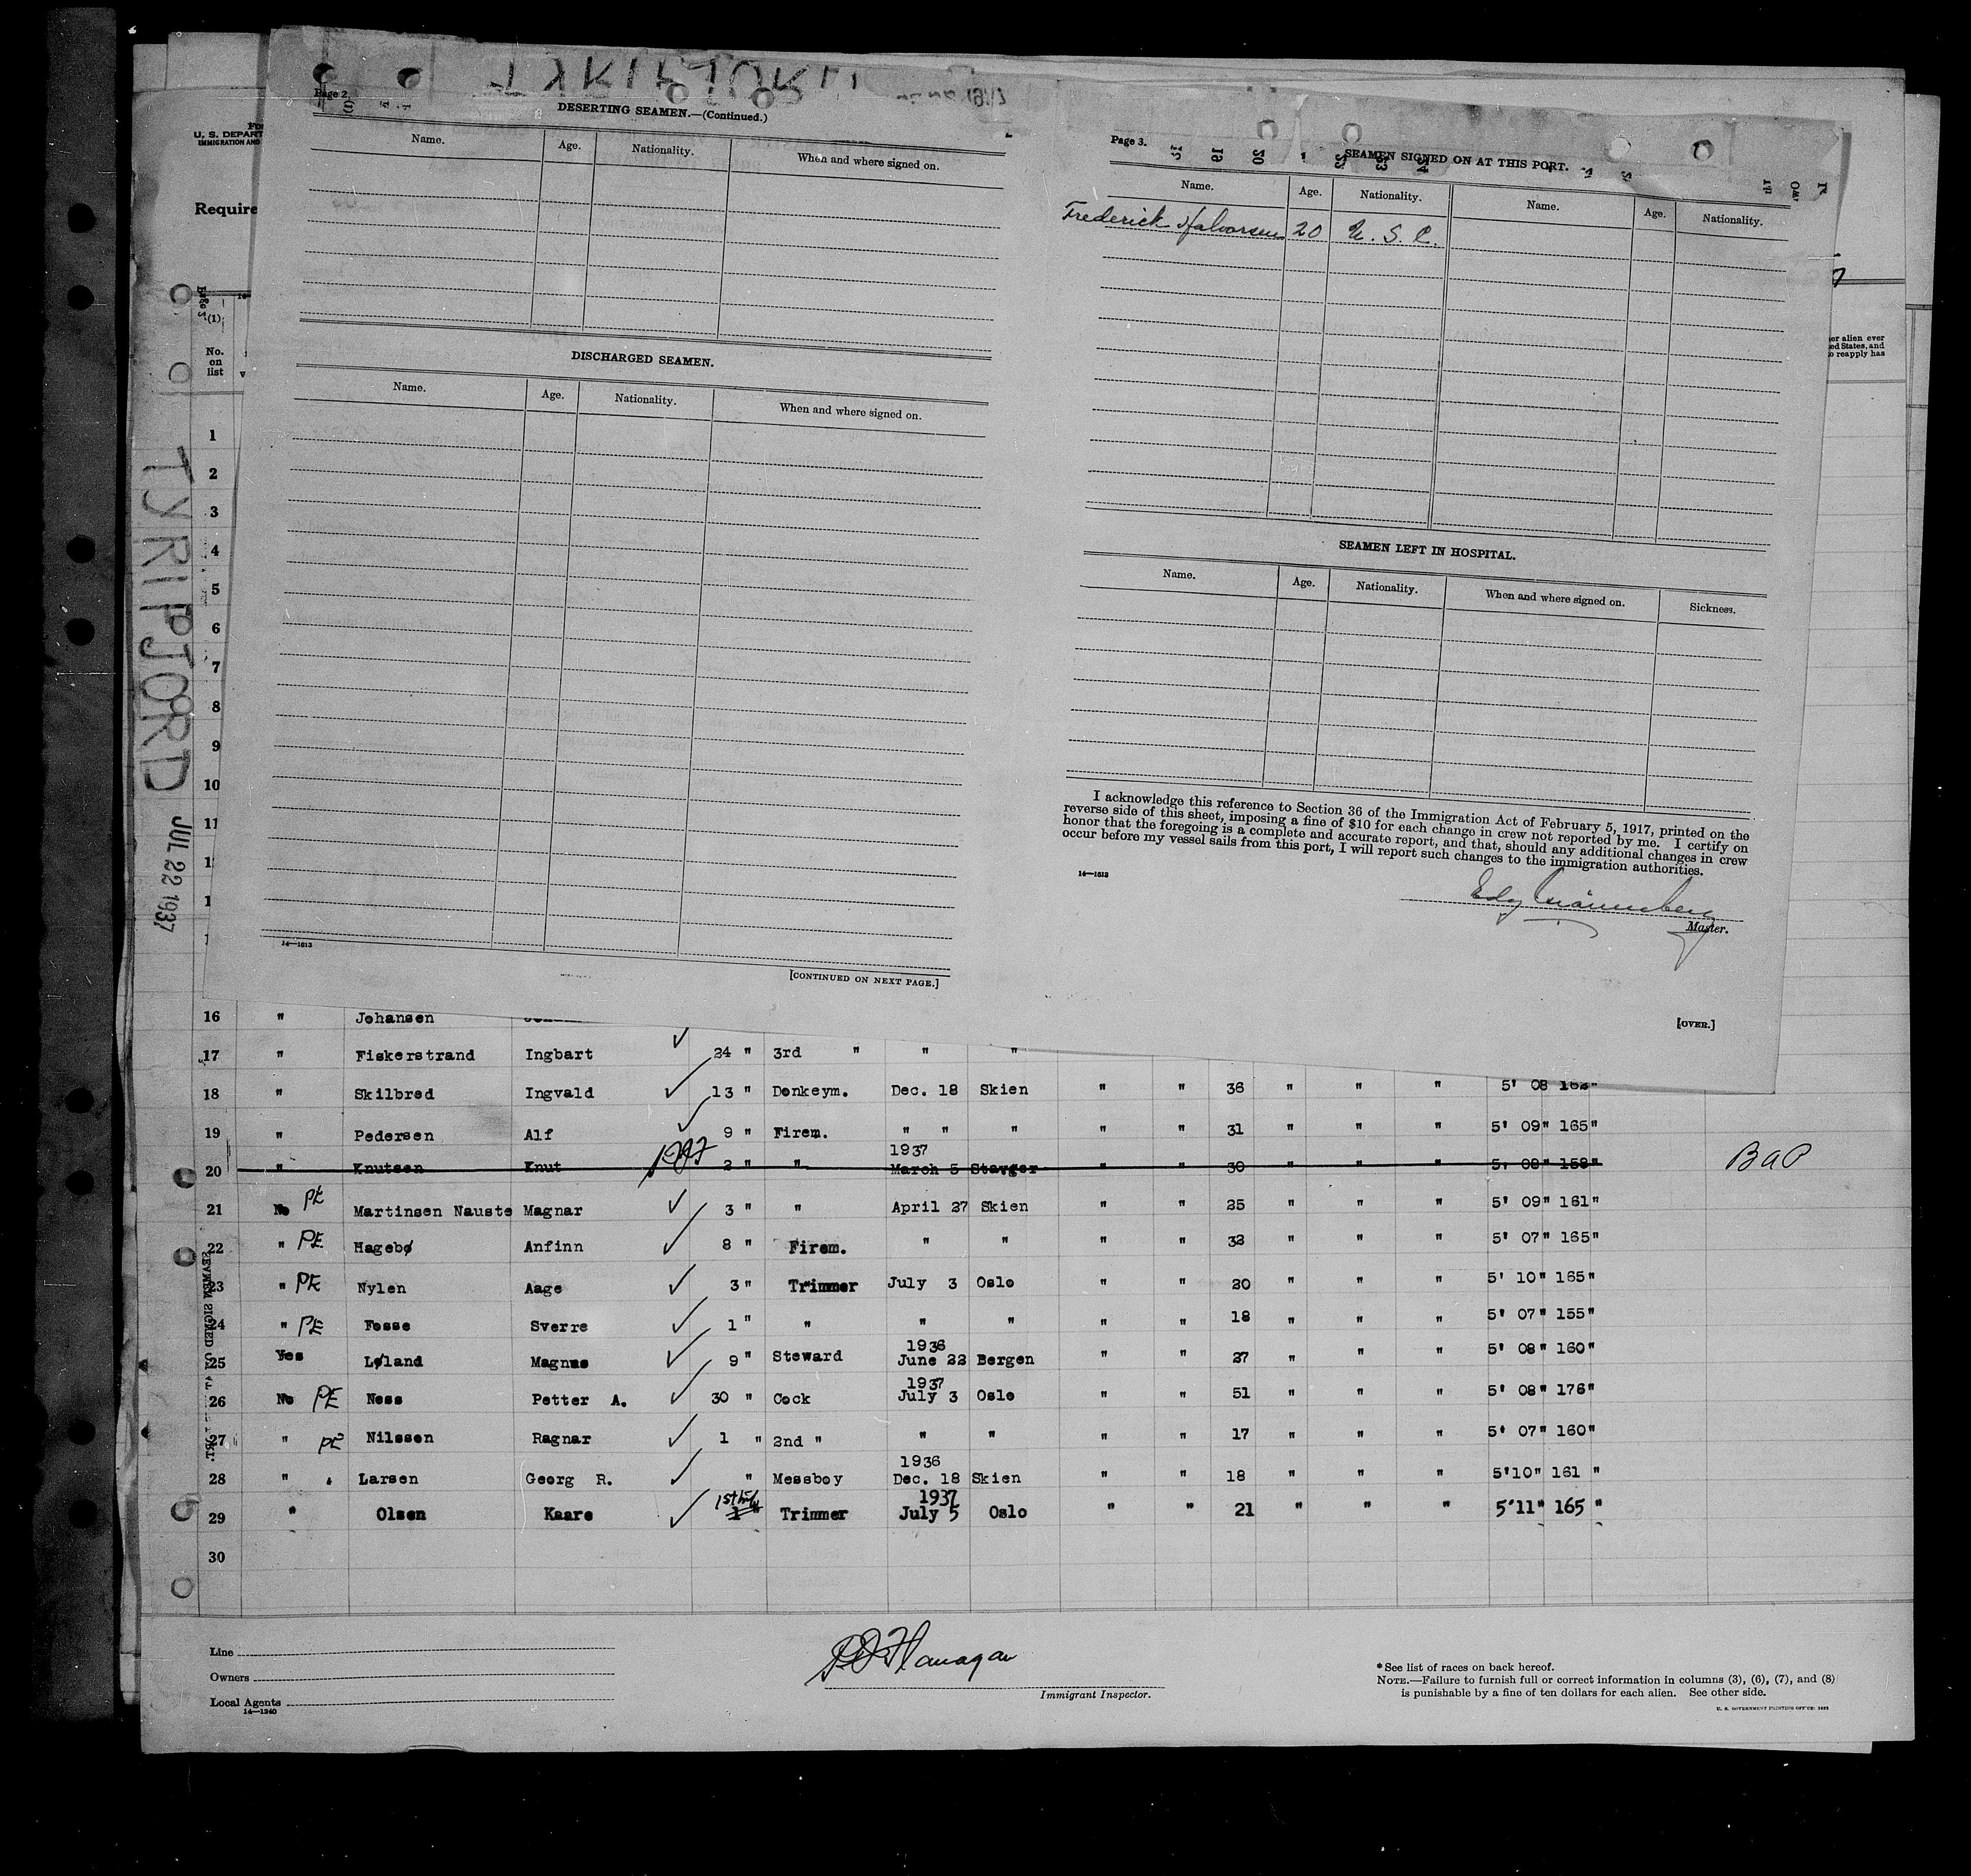 TYRIFJORD
Page 2.
DESERTING SEAMEN.—(Continued.)
Name. Age. Nationality. When and where signed on.
DISCHARGED SEAMEN.
Name. Age. Nationality. When and where signed on.
14—1613
[CONTINUED ON NEXT PAGE.]
Page 3.
SEAMEN SIGNED ON AT THIS PORT.
Name. Age. Nationality. Name. Age. Nationality.
Frederick Halvorsen 20 U. S. C.
SEAMEN LEFT IN HOSPITAL.
Name. Age. Nationality. When and where signed on. Sickness.
I acknowledge this reference to Section 36 of the Immigration Act of February 5, 1917, printed on the
reverse side of this sheet, imposing a fine of $10 for each change in crew not reported by me. I certify on
honor that the foregoing is a complete and accurate report, and that, should any additional changes in crew
occur before my vessel sails from this port, I will report such changes to the immigration authorities.
14—1613
Master.
[OVER.]
U. S. DEPART
IMMIGRATION AND
Require
(1)
No.
on
list
er alien ever
ed States, and
o reapply has
TYRIFJORD JUL 22 1937
1
2
3
4
5
6
7
8
9
10
11
16 " Johansen
17 " Fiskerstrand Ingbart 24 " 3rd " " "
18 " Skilbred Ingvald 13 " Donkeym. Dec. 18 Skien " " 36 " " " 5' 08
19 " Pedersen Alf 9 " Firem. " " " " " 31 " " " 5' 09" 165"
1937
20 " Knutsen Knut 2 " " March 5 Stavger " " 30 " " " 5' 08" 158" BaP
21 No PE Martinsen Nauste Magnar 3 " " April 27 Skien " " 25 " " " 5' 09" 161"
22 " PE Hagebø Anfinn 8 " Firem. " " " " 38 " " " 5' 07" 165"
23 " PE Nylen Aage 3" Trimmer July 3 Oslo " " 20 " " " 5' 10" 165"
24 " PE Fosse Sverre 1 " " " " " " 18 " " " 5' 07" 155"
1936
25 Yes Løland Magnus 9 " Steward June 22 Bergen " " 27 " " " 5' 08" 160"
1937
26 No PE Ness Petter A. 30 " Cock July 3 Oslo " " 51 " " " 5' 08" 176"
27 " PE Nilssen Ragnar 1 " 2nd " " " " " 17 " " " 5' 07" 160"
1936
28 " Larsen Georg R. " Messboy Dec. 18 Skien " " 18 " " " 5'10" 161 "
1937
29 " Olsen Kaare Trimmer July 5 Oslo " " 21 " " " 5'11" 165 "
30
Line
Owners
Local Agents
14—1240
Flanagan
Immigrant Inspector.
*See list of races on back hereof.
NOTE.—Failure to furnish full or correct information in columns (3), (6), (7), and (8)
is punishable by a fine of ten dollars for each alien. See other side.